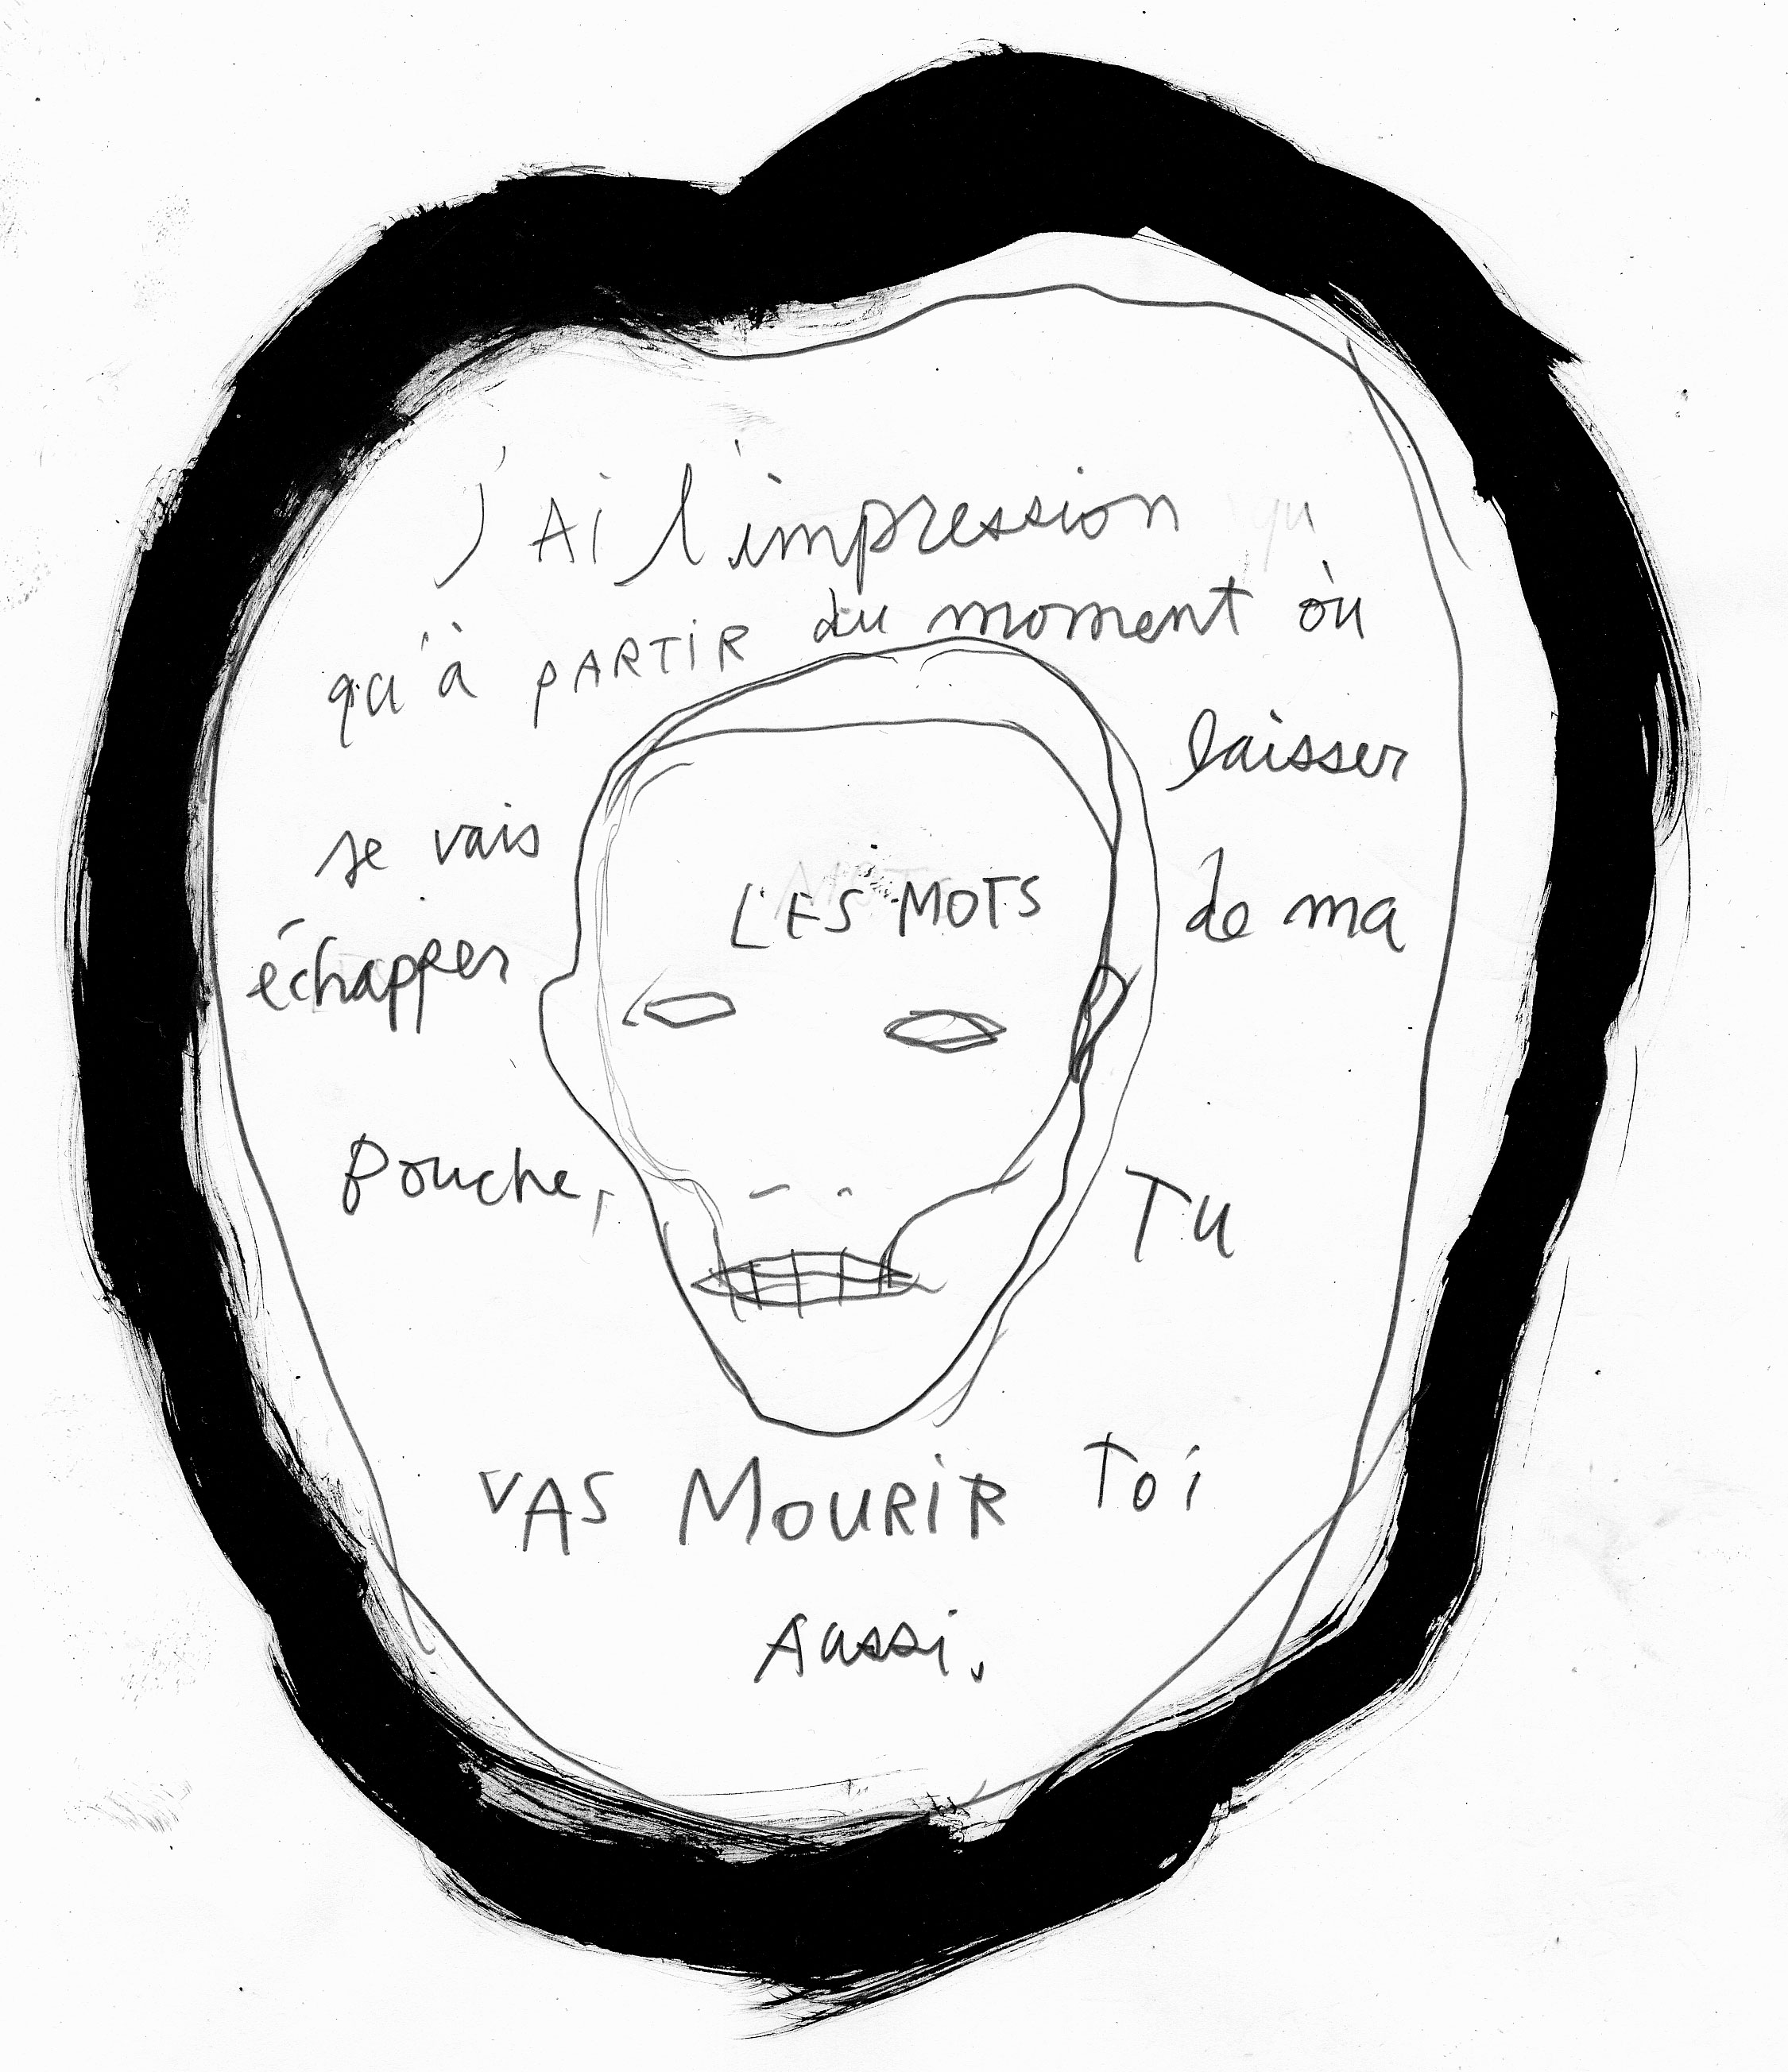 J'Ai l'impression
qu'à PARTiR du moment où
je vais laisser
échapper LES MOTS de ma
bouche, Tu
VAS MOURiR Toi
Aussi.